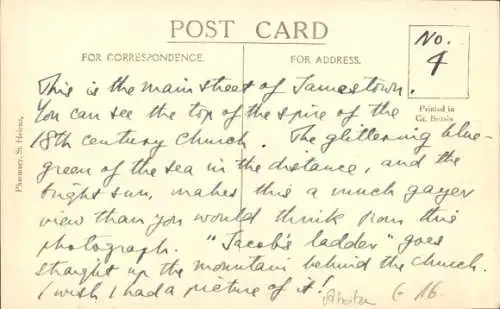 POST CARD
FOR CORRESPONDENCE.
FOR ADDRESS.
No.
4
Printed in
Gt. Britain.
Pharmacy, St Helena,
This is the main street of Jamestown.
You can see the top of the spire of the
18th century church. The glittering blue-
green of the sea in the distance, and the
bright sun, makes this a much gayer
view than you would think from this
photograph. "Jacob's ladder" goes
straight up the mountain behind the church.
I wish I had a picture of it!